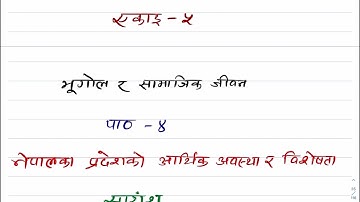 एकाइ - ५
भूगोल र सामाजिक जीवन
पाठ - ४
नेपालका प्रदेशको आर्थिक अवस्था र विशेषता
सारांश